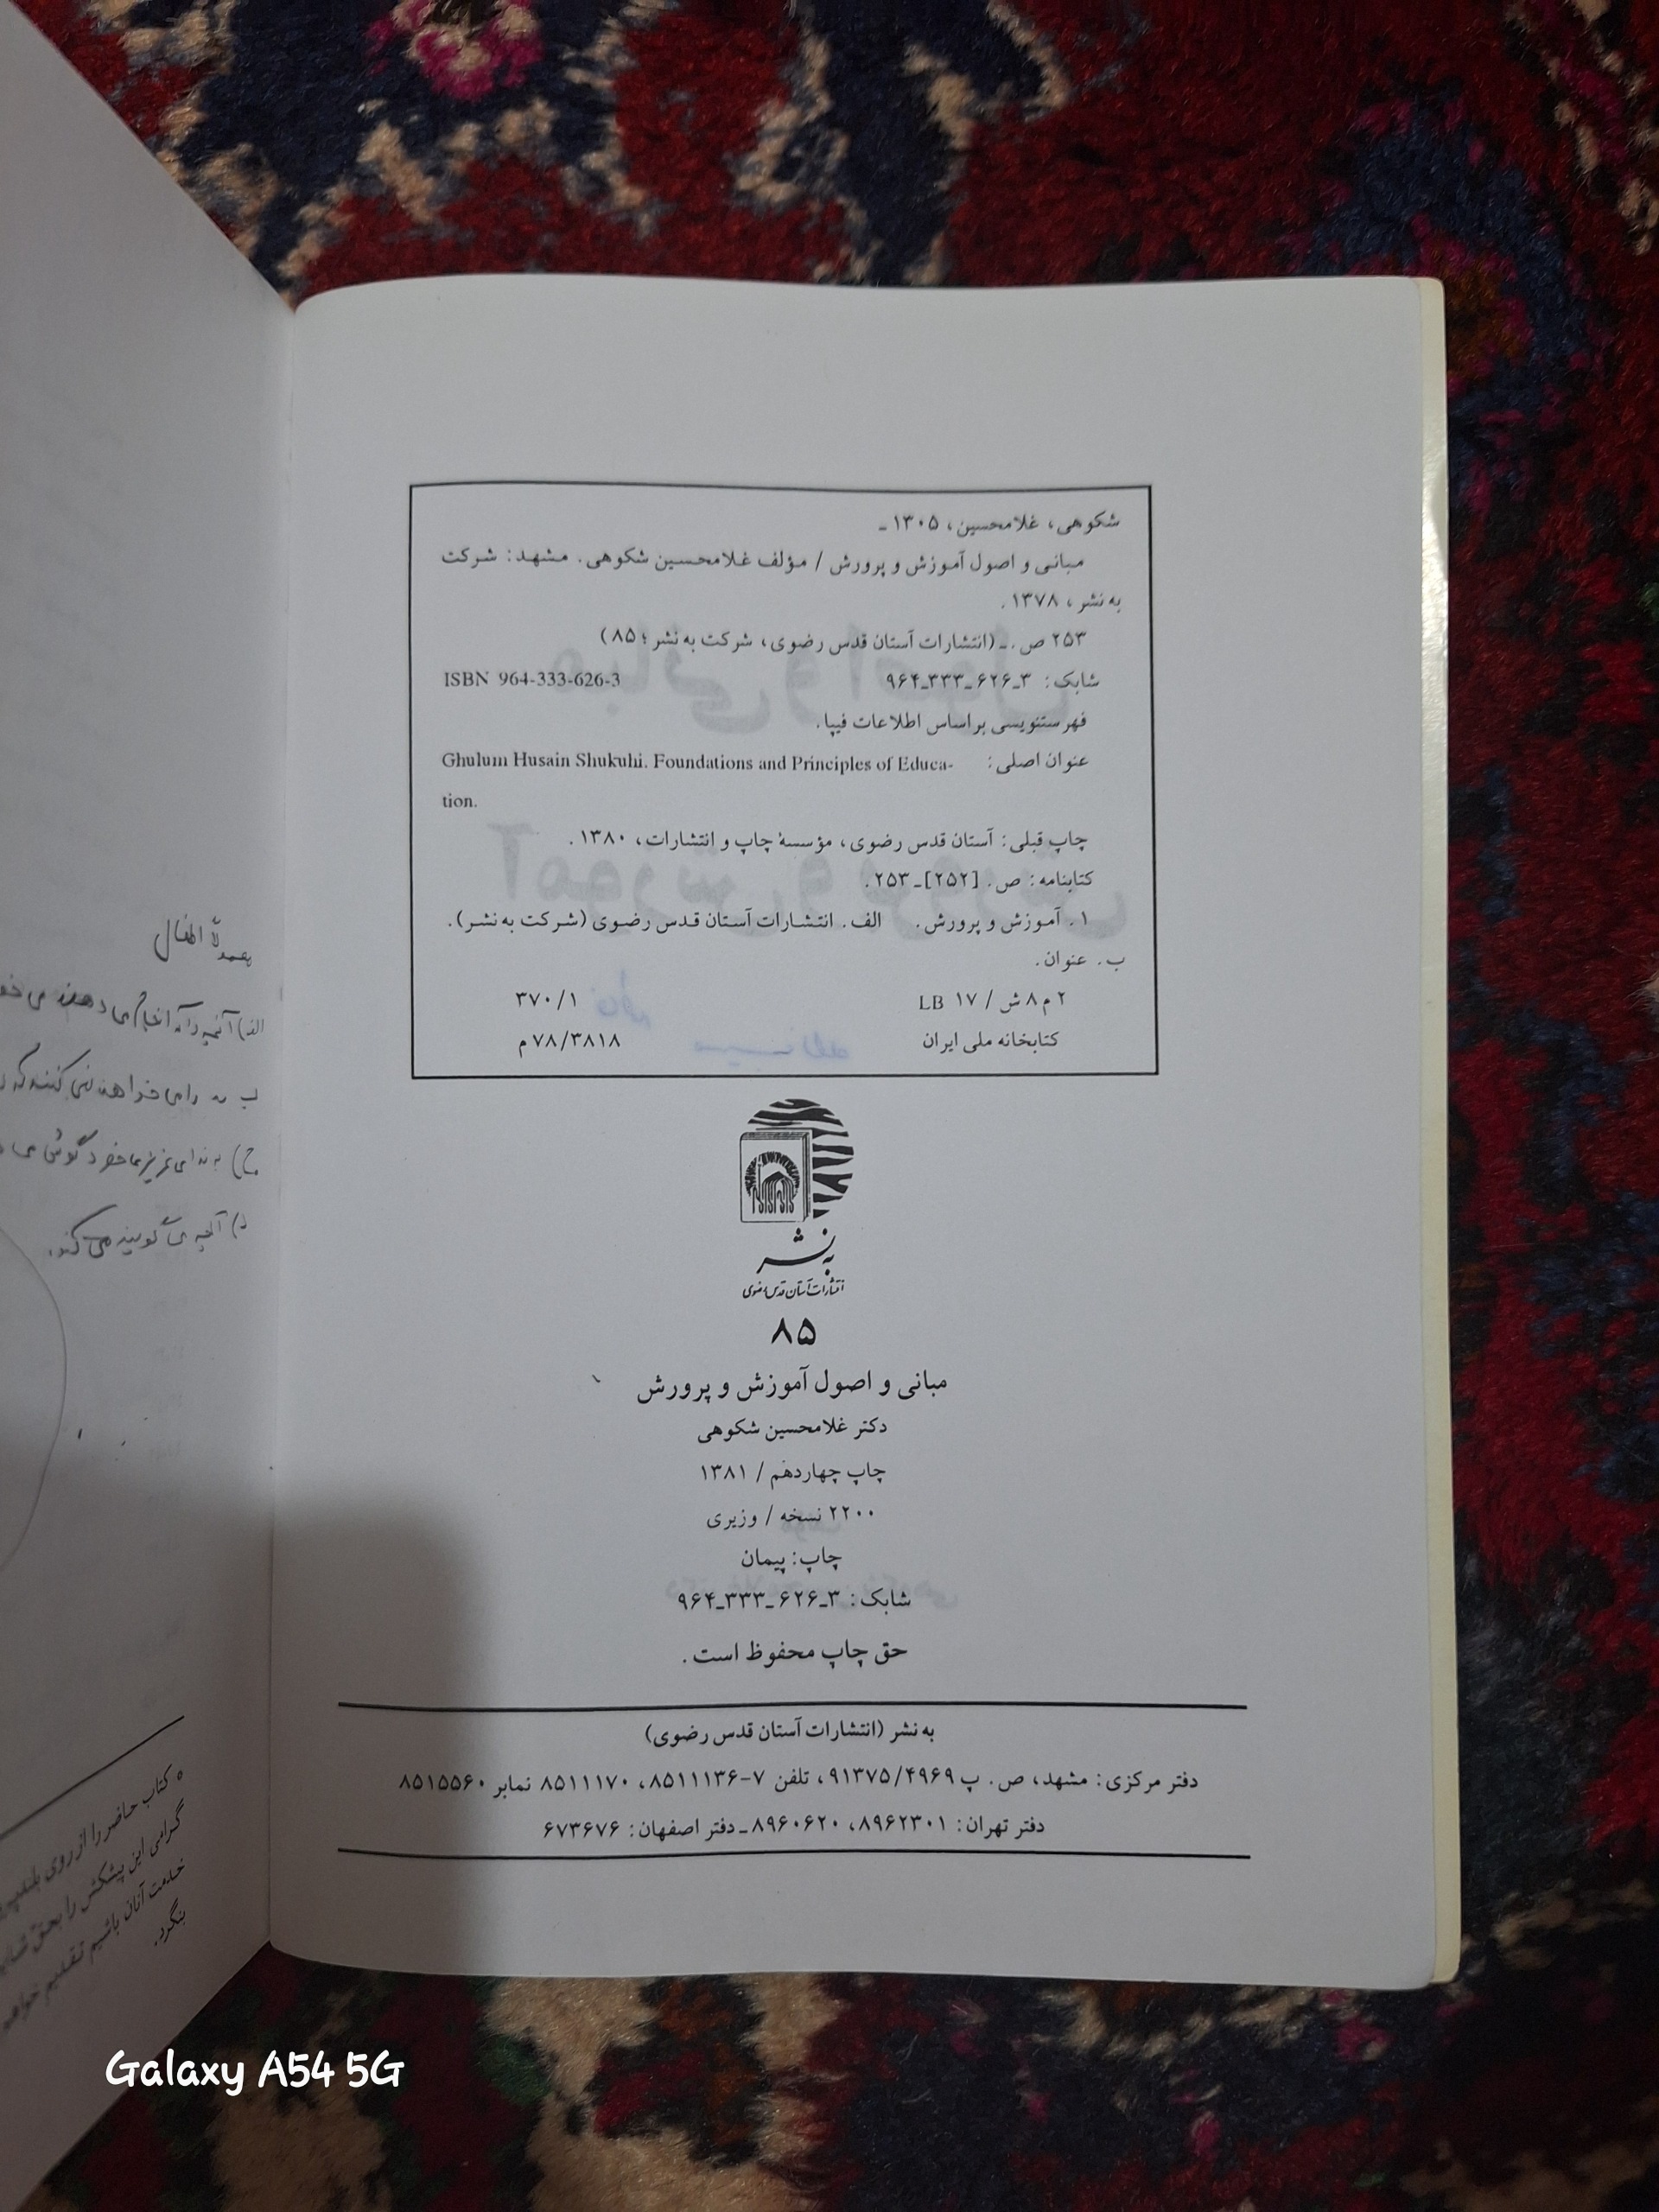 شکوهی، غلامحسین، ۱۳۰۵ ـ
مبانی و اصول آموزش و پرورش / مؤلف غلامحسین شکوهی. مشهد: شرکت
به‌نشر، ۱۳۷۸.
۲۵۳ ص. ـ (انتشارات آستان قدس رضوی، شرکت به‌نشر؛ ۸۵)
شابک: ۳ـ۶۲۶ـ۳۳۳ـ۹۶۴ ISBN 964-333-626-3
فهرستنویسی براساس اطلاعات فیپا.
عنوان اصلی: Ghulum Husain Shukuhi. Foundations and Principles of Educa-
tion.
چاپ قبلی: آستان قدس رضوی، مؤسسهٔ چاپ و انتشارات، ۱۳۸۰.
کتابنامه: ص. [۲۵۲] ـ ۲۵۳.
۱. آموزش و پرورش. الف. انتشارات آستان قدس رضوی (شرکت به‌نشر).
ب. عنوان.
۲ م ۸ ش / ۱۷ LB ۳۷۰/۱
کتابخانه ملی ایران ۷۸/۳۸۱۸ م
به نشر
انتشارات آستان قدس رضوی
۸۵
مبانی و اصول آموزش و پرورش
دکتر غلامحسین شکوهی
چاپ چهاردهم / ۱۳۸۱
۲۲۰۰ نسخه / وزیری
چاپ: پیمان
شابک: ۳ـ۶۲۶ـ۳۳۳ـ۹۶۴
حق چاپ محفوظ است.
به‌نشر (انتشارات آستان قدس رضوی)
دفتر مرکزی: مشهد، ص. پ ۹۱۳۷۵/۴۹۶۹، تلفن ۷-۸۵۱۱۱۳۶، ۸۵۱۱۱۷۰ نمابر ۸۵۱۵۵۶۰
دفتر تهران: ۸۹۶۲۳۰۱، ۸۹۶۰۶۲۰ ـ دفتر اصفهان: ۶۷۳۶۷۶
کتاب حاضر را از روی
گرامی این پیشکش را بحق
خدمت آنان باشیم تقدیم
بنگرد.
Galaxy A54 5G